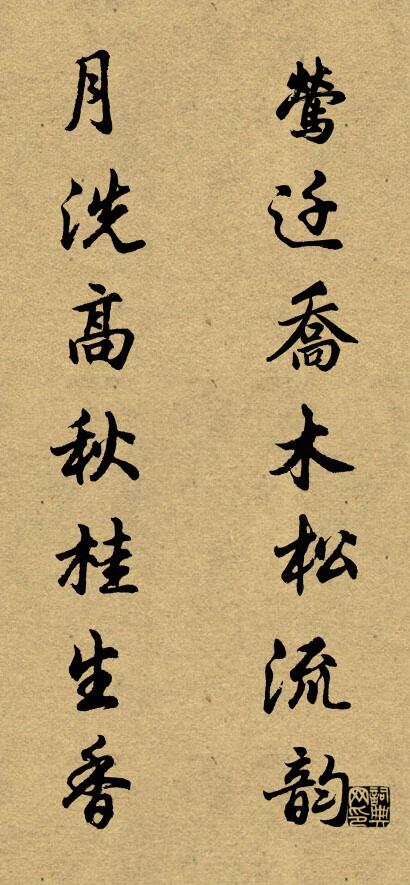 鶯迁喬木松流韵
月洗高秋桂生香
詞典网印